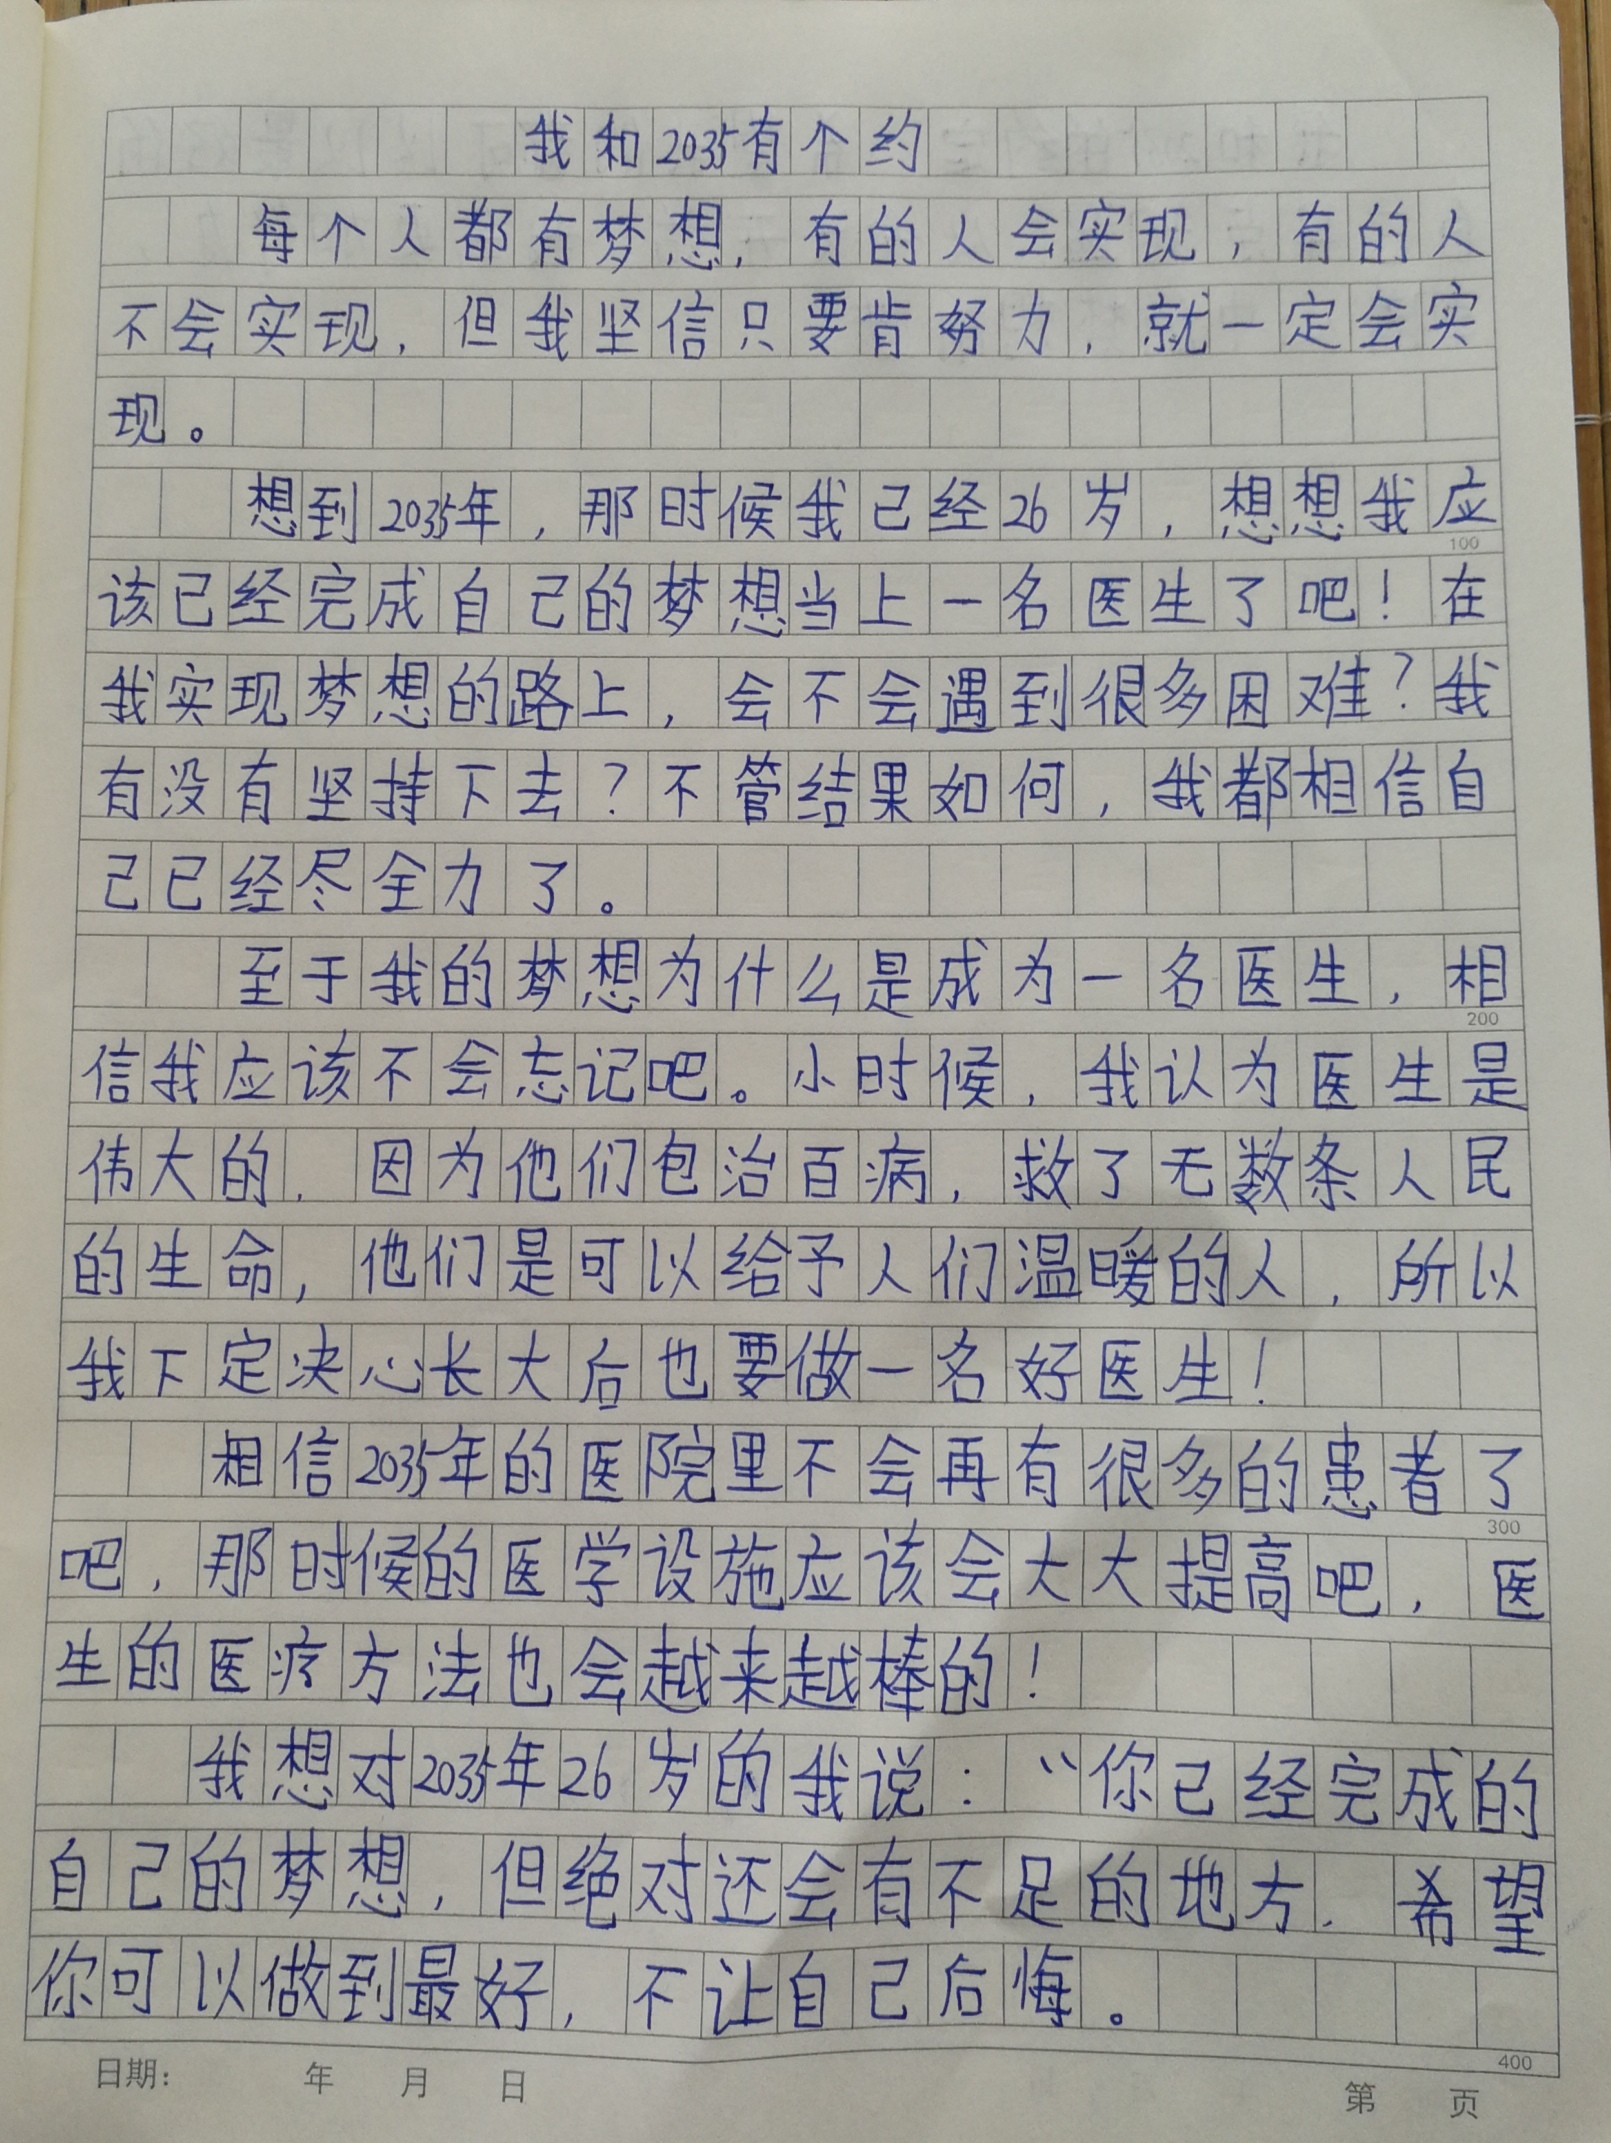 我和2035有个约
每个人都有梦想，有的人会实现，有的人
不会实现，但我坚信只要肯努力，就一定会实
现。
想到2035年，那时候我已经26岁，想想我应
100
该已经完成自己的梦想当上一名医生了吧！在
我实现梦想的路上，会不会遇到很多困难？我
有没有坚持下去？不管结果如何，我都相信自
己已经尽全力了。
至于我的梦想为什么是成为一名医生，相
200
信我应该不会忘记吧。小时候，我认为医生是
伟大的，因为他们包治百病，救了无数条人民
的生命，他们是可以给予人们温暖的人，所以
我下定决心长大后也要做一名好医生！
相信2035年的医院里不会再有很多的患者了
300
吧，那时候的医学设施应该会大大提高吧，医
生的医疗方法也会越来越棒的！
我想对2035年26岁的我说：“你已经完成的
自己的梦想，但绝对还会有不足的地方，希望
你可以做到最好，不让自己后悔。
400
日期： 年 月 日
第 页